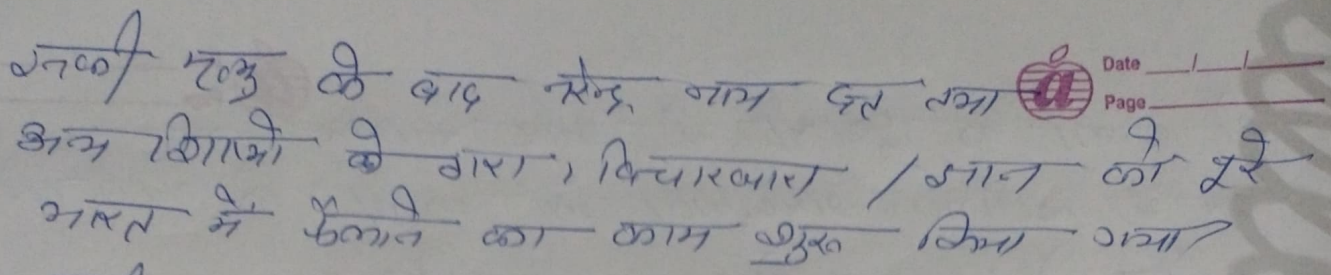 उनकी मृत्यु के बाद नरेन्द्र नाथ दत्त तथा
Date
Page
अन्य शिष्यों के द्वारा, विचारधारा / ज्ञान को पूरे
भारत में फैलाने का काम शुरू किया गया